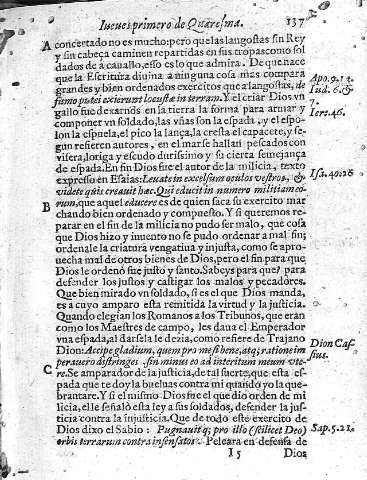 Iueues primero de Quaresma. 137
A concertado no es mucho: pero que las langostas sin Rey
y sin cabeça caminen repartidas en sus tropas como sol
dados de a cauallo, esso es lo que admira. De que nace
que la Escritura diuina a ninguna cosa mas compara
grandes y bien ordenados exercitos que a langostas, de
fumo putei exierunt locustæ in terram. Y el criar Dios vn
gallo fue dexarnos en la tierra la forma para armar y
componer vn soldado, las vñas son la espada, y el espo-
lon la espuela, el pico la lança, la cresta el capacete, y se-
gun refieren autores, en el mar se hallan pescados con
visera, loriga y escudo durissimo y su cierta semejança
de espada. En fin Dios fue el autor de la milicia, texto
expresso en Esaias: Leuate in excelsum oculos vestros, &
videte quis creauit hæc. Qui educit in numero militiam eo-
B rum, que aquel educere es de quien saca su exercito mar
chando bien ordenado y compuesto. Y si queremos re-
parar en el fin de la milicia no pudo ser malo, que cosa
que Dios hizo y inuento no se pudo ordenar a mal fin;
ordenale la criatura vengatiua y injusta, como se apro-
uecha mal de otros bienes de Dios, pero el fin para que
Dios le ordenó fue justo y santo. Sabeys para que? para
defender los justos y castigar los malos y pecadores.
Que bien mirado vn soldado, si es el que Dios manda,
es a cuyo amparo esta remitida la virtud y la justicia.
Quando elegian los Romanos a los Tribunos, que eran
como los Maestres de campo, les daua el Emperador
vna espada, al darsela le dezia, como refiere de Trajano
Dion: Accipe gladium, quem pro me si bene, atq; ratione im
perauero distringes, sin minus eo ad interitum meum vte-
C re. Se amparador de la justicia, de tal suerte, que esta es-
pada que te doy la bueluas contra mi quando yo la que-
brantare. Y si el mismo Dios fue el que dio orden de mi
licia, el le señaló esta ley a sus soldados, defender la jus-
ticia contra la injusticia. Que de todo este exercito de
Dios dixo el Sabio: Pugnauit q; pro illo (scilicet Deo)
orbis terrarum contra insensatos. Peleara en defensa de
I 5 Dios
Apo. 9.
Iud. 6. &
7.
Iere. 46.
Isa. 40. 26
Dion Cas-
sius.
Sap. 5. 21.